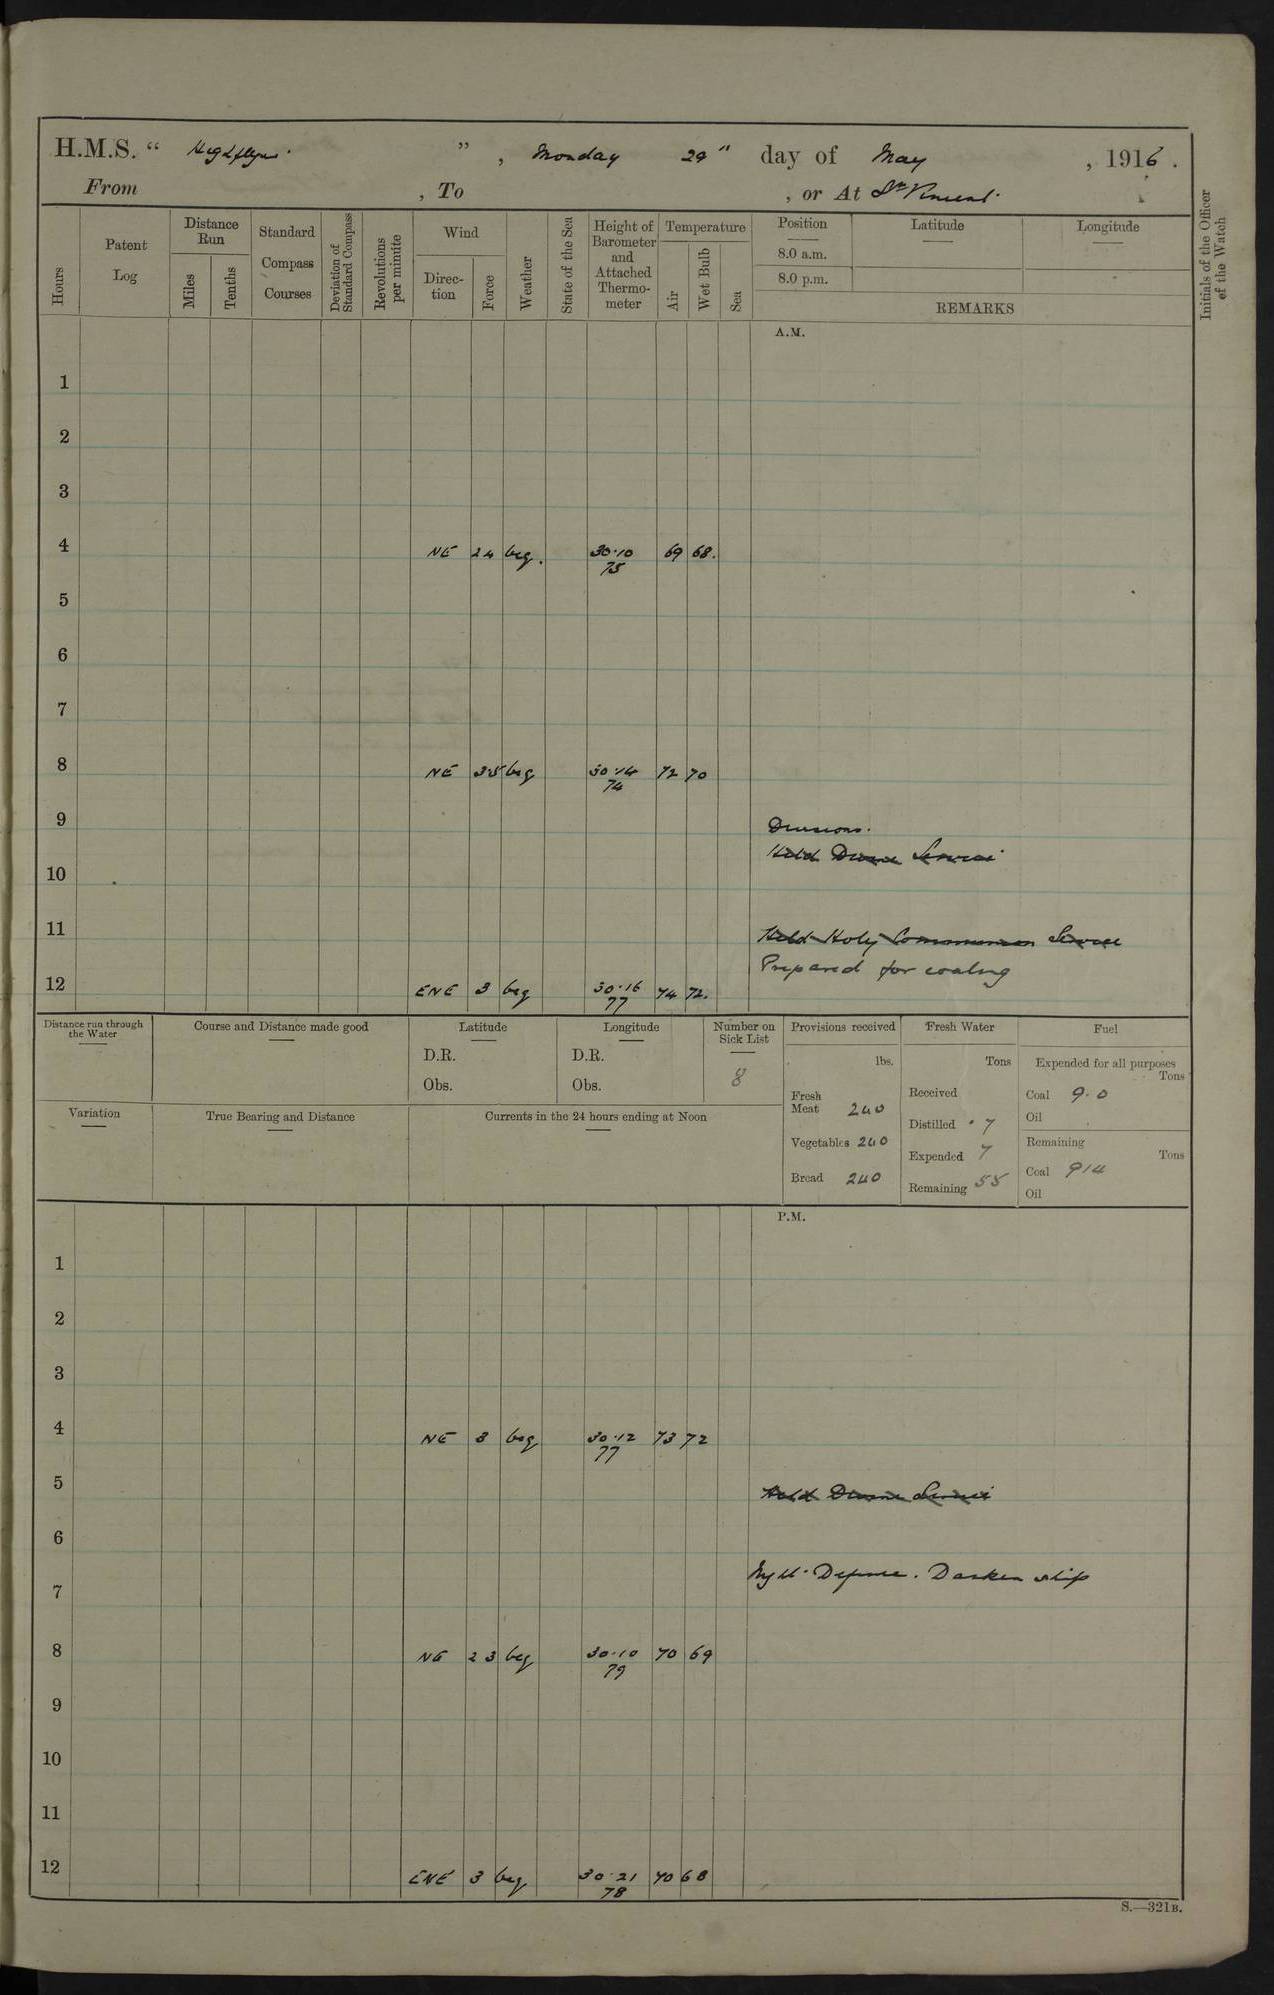 H.M.S. “ Highflyer ” , Monday 29" day of May , 1916 .
From , To , or At St Vincent.
Hours
Patent Log
Distance Run
Miles
Tenths
Standard Compass Courses
Deviation of Standard Compass
Revolutions per minute
Wind
Direc- tion
Force
Weather
State of the Sea
Height of Barometer and Attached Thermo- meter
Temperature
Air
Wet Bulb
Sea
Position
8.0 a.m.
8.0 p.m.
Latitude
Longitude
REMARKS
Initials of the Officer of the Watch
A.M.
1
2
3
4 NE 24 bcg. 30.10 69 68.
75
5
6
7
8 NE 35 bcg 30.14 72 70
74
9 Divisions.
Held Divine Service
10
11 Held Holy Communion Service
Prepared for coaling
12 ENE 3 bcg 30.16 74 72.
77
Distance run through the Water
Course and Distance made good
Latitude
D.R.
Obs.
Longitude
D.R.
Obs.
Number on Sick List
8
Provisions received
lbs.
Fresh Meat 240
Vegetables 240
Bread 240
Fresh Water
Tons
Received
Distilled 7
Expended 7
Remaining 55
Fuel
Expended for all purposes
Tons
Coal 9.0
Oil
Remaining
Tons
Coal 914
Oil
Variation
True Bearing and Distance
Currents in the 24 hours ending at Noon
P.M.
1
2
3
4 NE 3 bcg 30.12 73 72
77
5 Held Divine Service
6
Night Defence. Darken ship
7
8 NE 23 bcg 30.10 70 69
79
9
10
11
12 ENE 3 bcg 30.21 70 68
78
S.—321B.